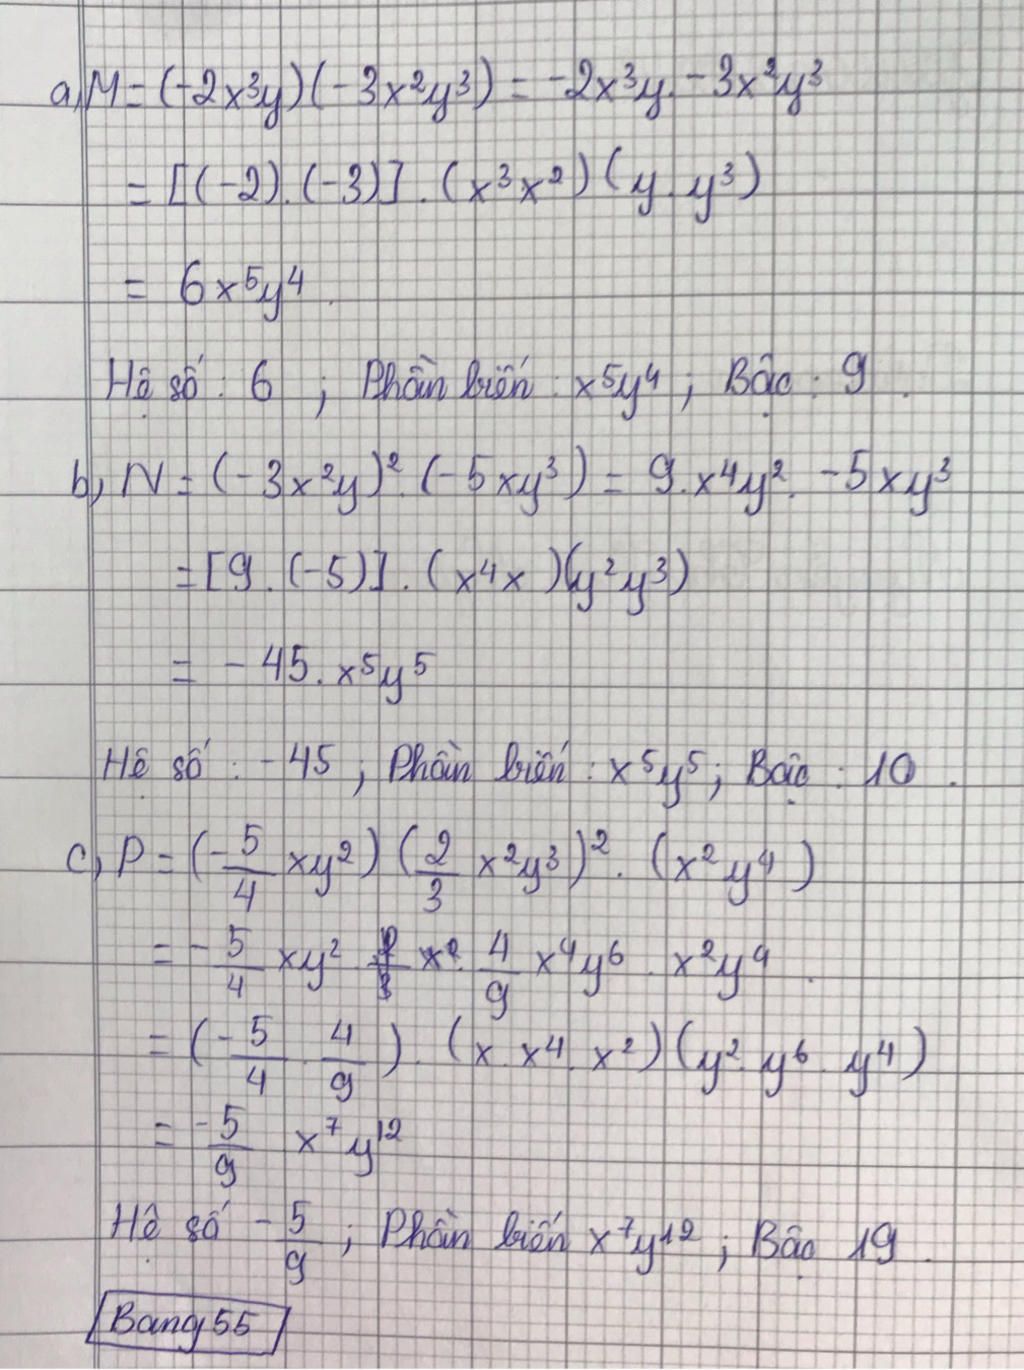 a, M = (-2x³y)(-3x²y³) = -2x³y. -3x²y³
= [(-2).(-3)].(x³x²)(y.y³)
= 6x⁵y⁴.
Hệ số : 6 ; Phần biến : x⁵y⁴ ; Bậc : 9.
b, N = (-3x²y)².(-5xy³) = 9.x⁴y². -5xy³
= [9.(-5)].(x⁴x)(y²y³)
= -45.x⁵y⁵
Hệ số : -45 ; Phần biến : x⁵y⁵ ; Bậc : 10.
c, P = (-5/4 xy²)(2/3 x²y³)².(x²y⁴)
= -5/4 xy². 4/9 x⁴y⁶. x²y⁴.
= (-5/4 . 4/9).(x.x⁴.x²)(y².y⁶.y⁴)
= -5/9 x⁷y¹²
Hệ số -5/9 ; Phần biến x⁷y¹² ; Bậc 19.
Bang55